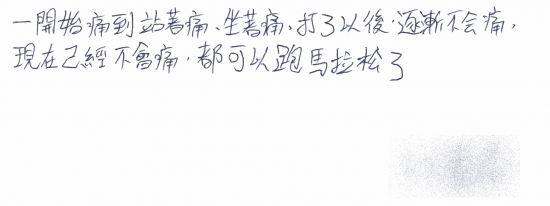 一開始痛到站著痛、坐著痛,打了以後,逐漸不会痛,
現在已經不會痛,都可以跑馬拉松了